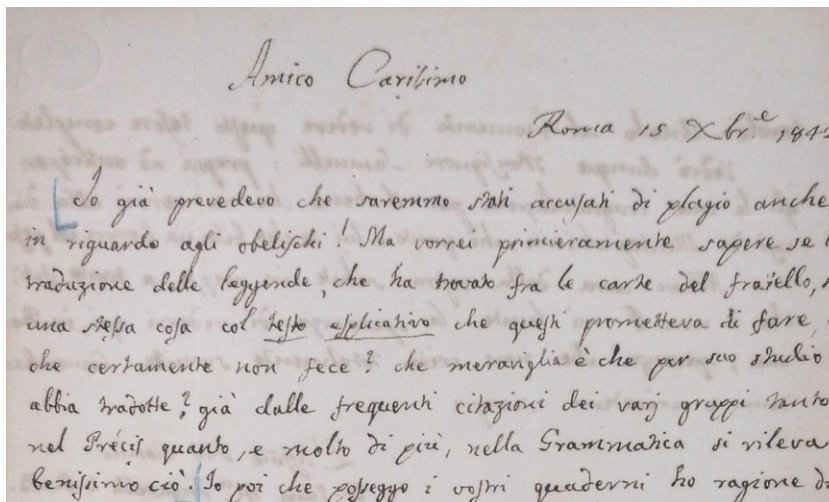 Amico Carissimo
Roma 15 Xbre 1842
Io già prevedevo che saremmo stati accusati di plagio anche
in riguardo agli obelischi! Ma vorrei primieramente sapere se
traduzione delle leggende, che ha trovato fra le carte del fratello,
una stessa cosa col testo esplicativo che questi prometteva di fare,
che certamente non fece? che meraviglia è che per suo studio
abbia tradotte? già dalle frequenti citazioni dei varj gruppi tanto
nel Précis quanto, e molto di più, nella Grammatica si rileva
benissimo ciò. Io poi che posseggo i vostri quaderni ho ragione di